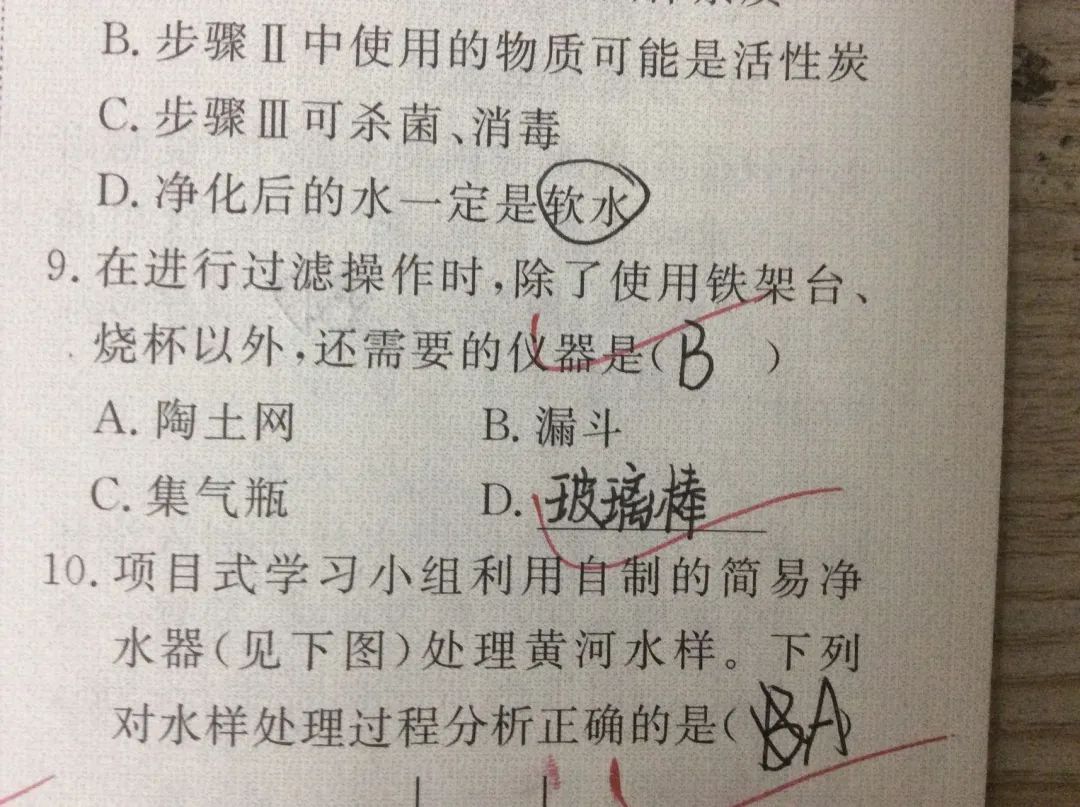 B. 步骤Ⅱ中使用的物质可能是活性炭
C. 步骤Ⅲ可杀菌、消毒
D. 净化后的水一定是软水
9. 在进行过滤操作时,除了使用铁架台、
烧杯以外,还需要的仪器是( B )
A. 陶土网 B. 漏斗
C. 集气瓶 D. 玻璃棒
10. 项目式学习小组利用自制的简易净
水器(见下图)处理黄河水样。下列
对水样处理过程分析正确的是( A )